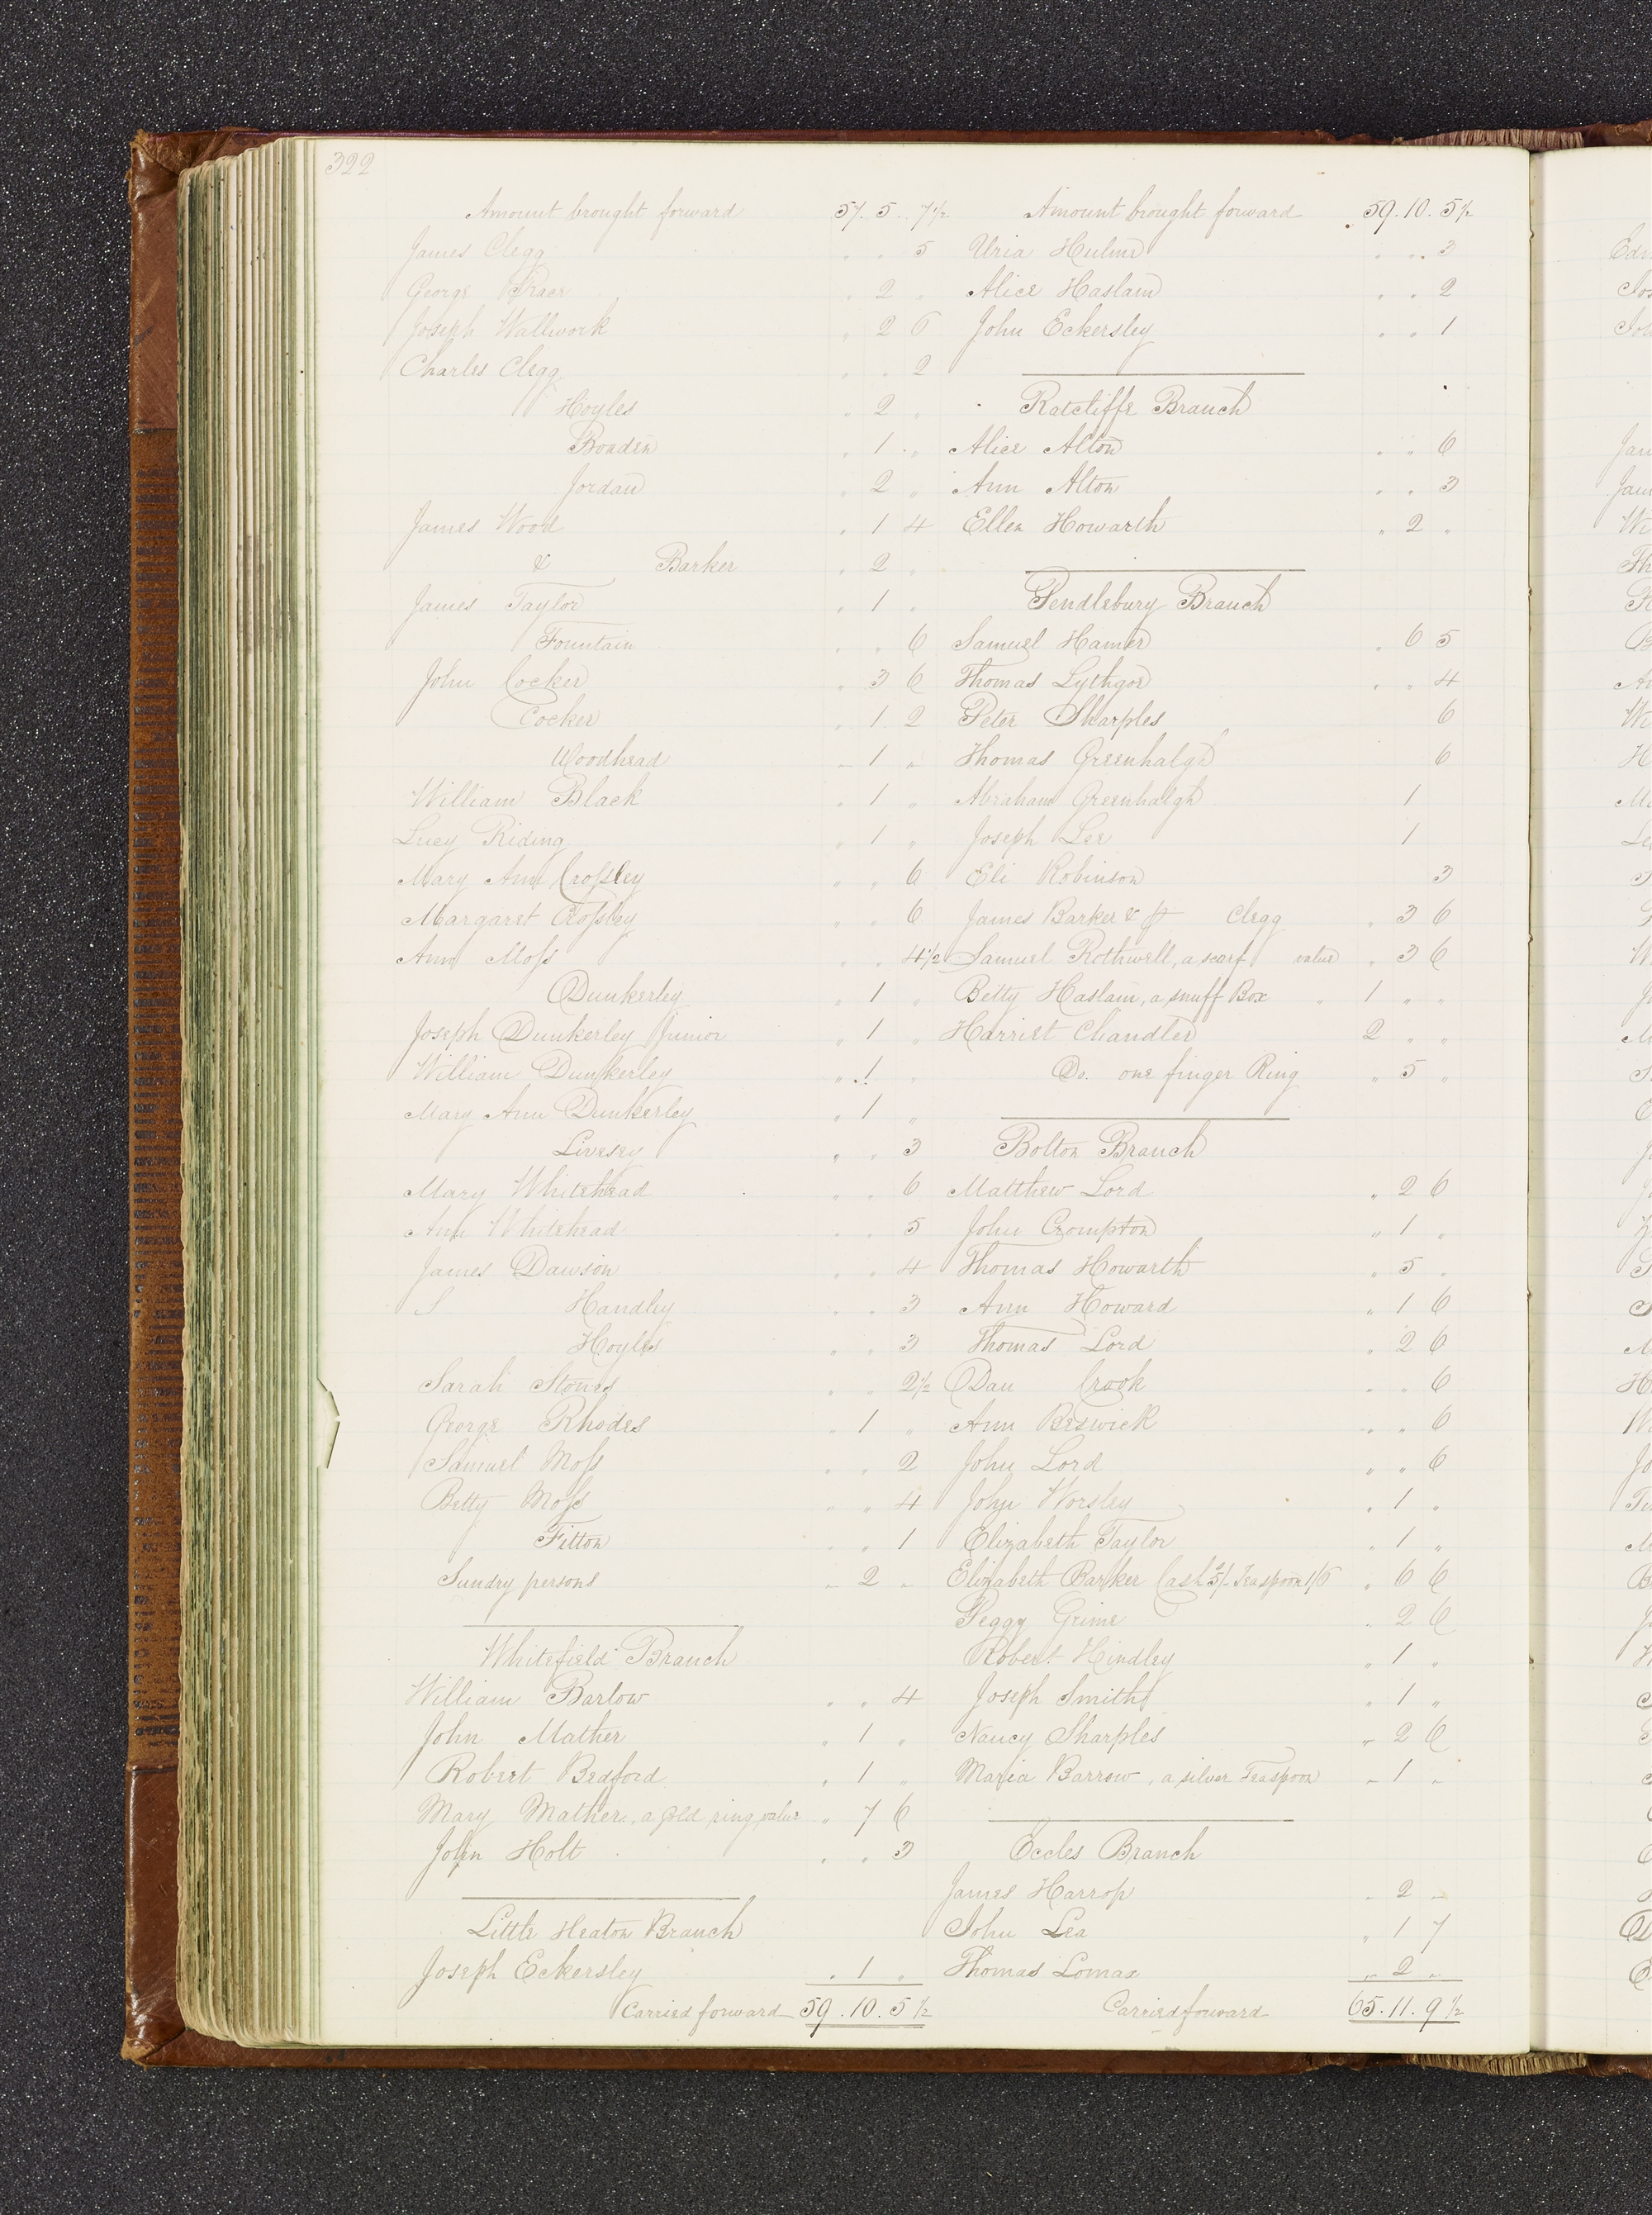 322
Amount brought forward 57. 5. 7½
James Clegg " " 5
George " 2 "
Joseph Wallwork " 2 6
Charles Clegg " " 2
Hoyles " 2 "
Boaden " 1 "
Jordan " 2 "
James Wood " 1 4
& Barker " 2 "
James Taylor " 1 "
Fountain " " 6
John Cocker " 3 6
Cocker " 1 2
Woodhead " 1 "
William Black " 1 "
Lucy Riding " 1 "
Mary Ann Crossley " " 6
Margaret Crossley " " 6
Ann Moss " " 4½
Dunkerley " 1 "
Joseph Dunkerley Junior " 1 "
William Dunkerley " 1 "
Mary Ann Dunkerley " 1 "
Livesey " " 3
Mary Whitehead " " 6
Ann Whitehead " " 5
James Dawson " " 4
S Handley " " 3
Hoyles " " 3
Sarah Stones " " 2½
George Rhodes " 1 "
Samuel Moss " " 2
Betty Moss " " 4
Fitton " " 1
Sundry persons " 2 "
Whitefield Branch
William Barlow " " 4
John Mather " 1 "
Robert Bedford " 1 "
Mary Mather, a gold ring value " 7 6
John Holt " " 3
Little Heaton Branch
Joseph Eckersley " 1 "
Carried forward 59. 10. 5½
Amount brought forward 59. 10. 5½
Uria Hulme " " 3
Alice Haslam " " 2
John Eckersley " " 1
Ratcliffe Branch
Alice Alton " " 6
Ann Alton " " 3
Ellen Howarth " 2 "
Pendlebury Branch
Samuel Hamer " 6 5
Thomas Lythgoe " " 4
Peter Sharples 6
Thomas Greenhalgh 6
Abraham Greenhalgh 1
Joseph Lee 1
Eli Robinson 3
James Barker & Clegg " 3 6
Samuel Rothwell, a scarf value " 3 6
Betty Haslam, a snuff Box " 1 " "
Harriet Chandler 2 " "
Do. one finger Ring " 5 "
Bolton Branch
Matthew Lord " 2 6
John Crompton " 1 "
Thomas Howarth " 5 "
Ann Howard " 1 6
Thomas Lord " 2 6
Dan Crook " " 6
Ann Beswick " " 6
John Lord " " 6
John Worsley " 1 "
Elizabeth Taylor " 1 "
Elizabeth Barker Cash 5/- Teaspoon 1/6 " 6 6
Peggy Grime " 2 6
Robert Hindley " 1 "
Joseph Smith " 1 "
Nancy Sharples " 2 6
Maria Barrow, a silver Teaspoon " 1 "
Eccles Branch
James Harrop " 2 "
John Lea " 1 7
Thomas Lomax " 2 "
Carried forward 65. 11. 9½